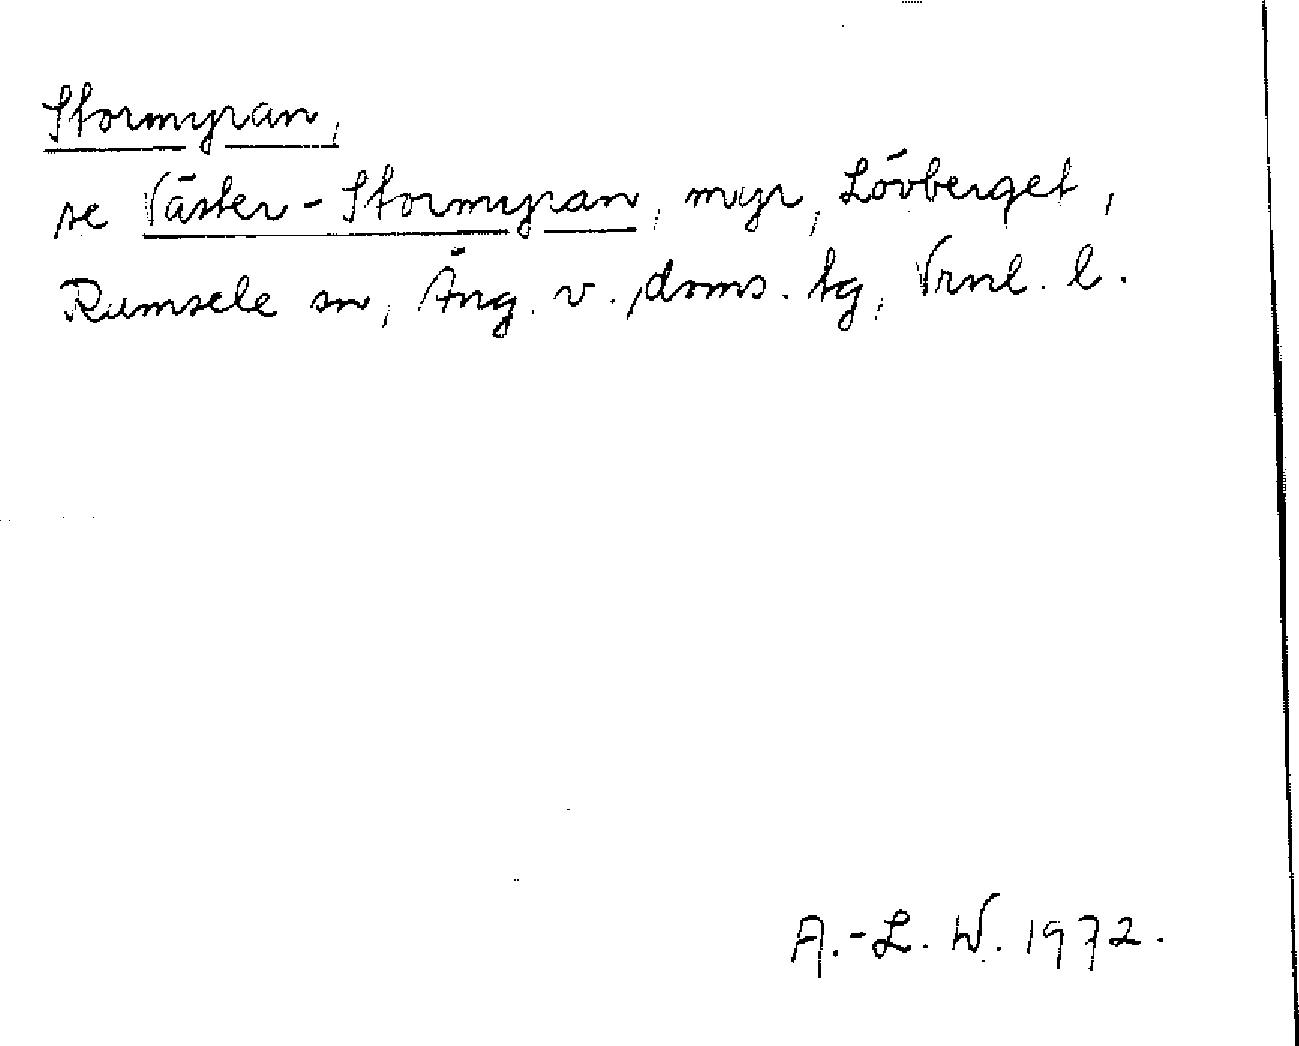 Stormyran,
se Väster-Stormyran, myr, Lövberget,
Rumsele sn, Ång. v., doms. tg, Vrnl. l.
A.-L. W. 1972.